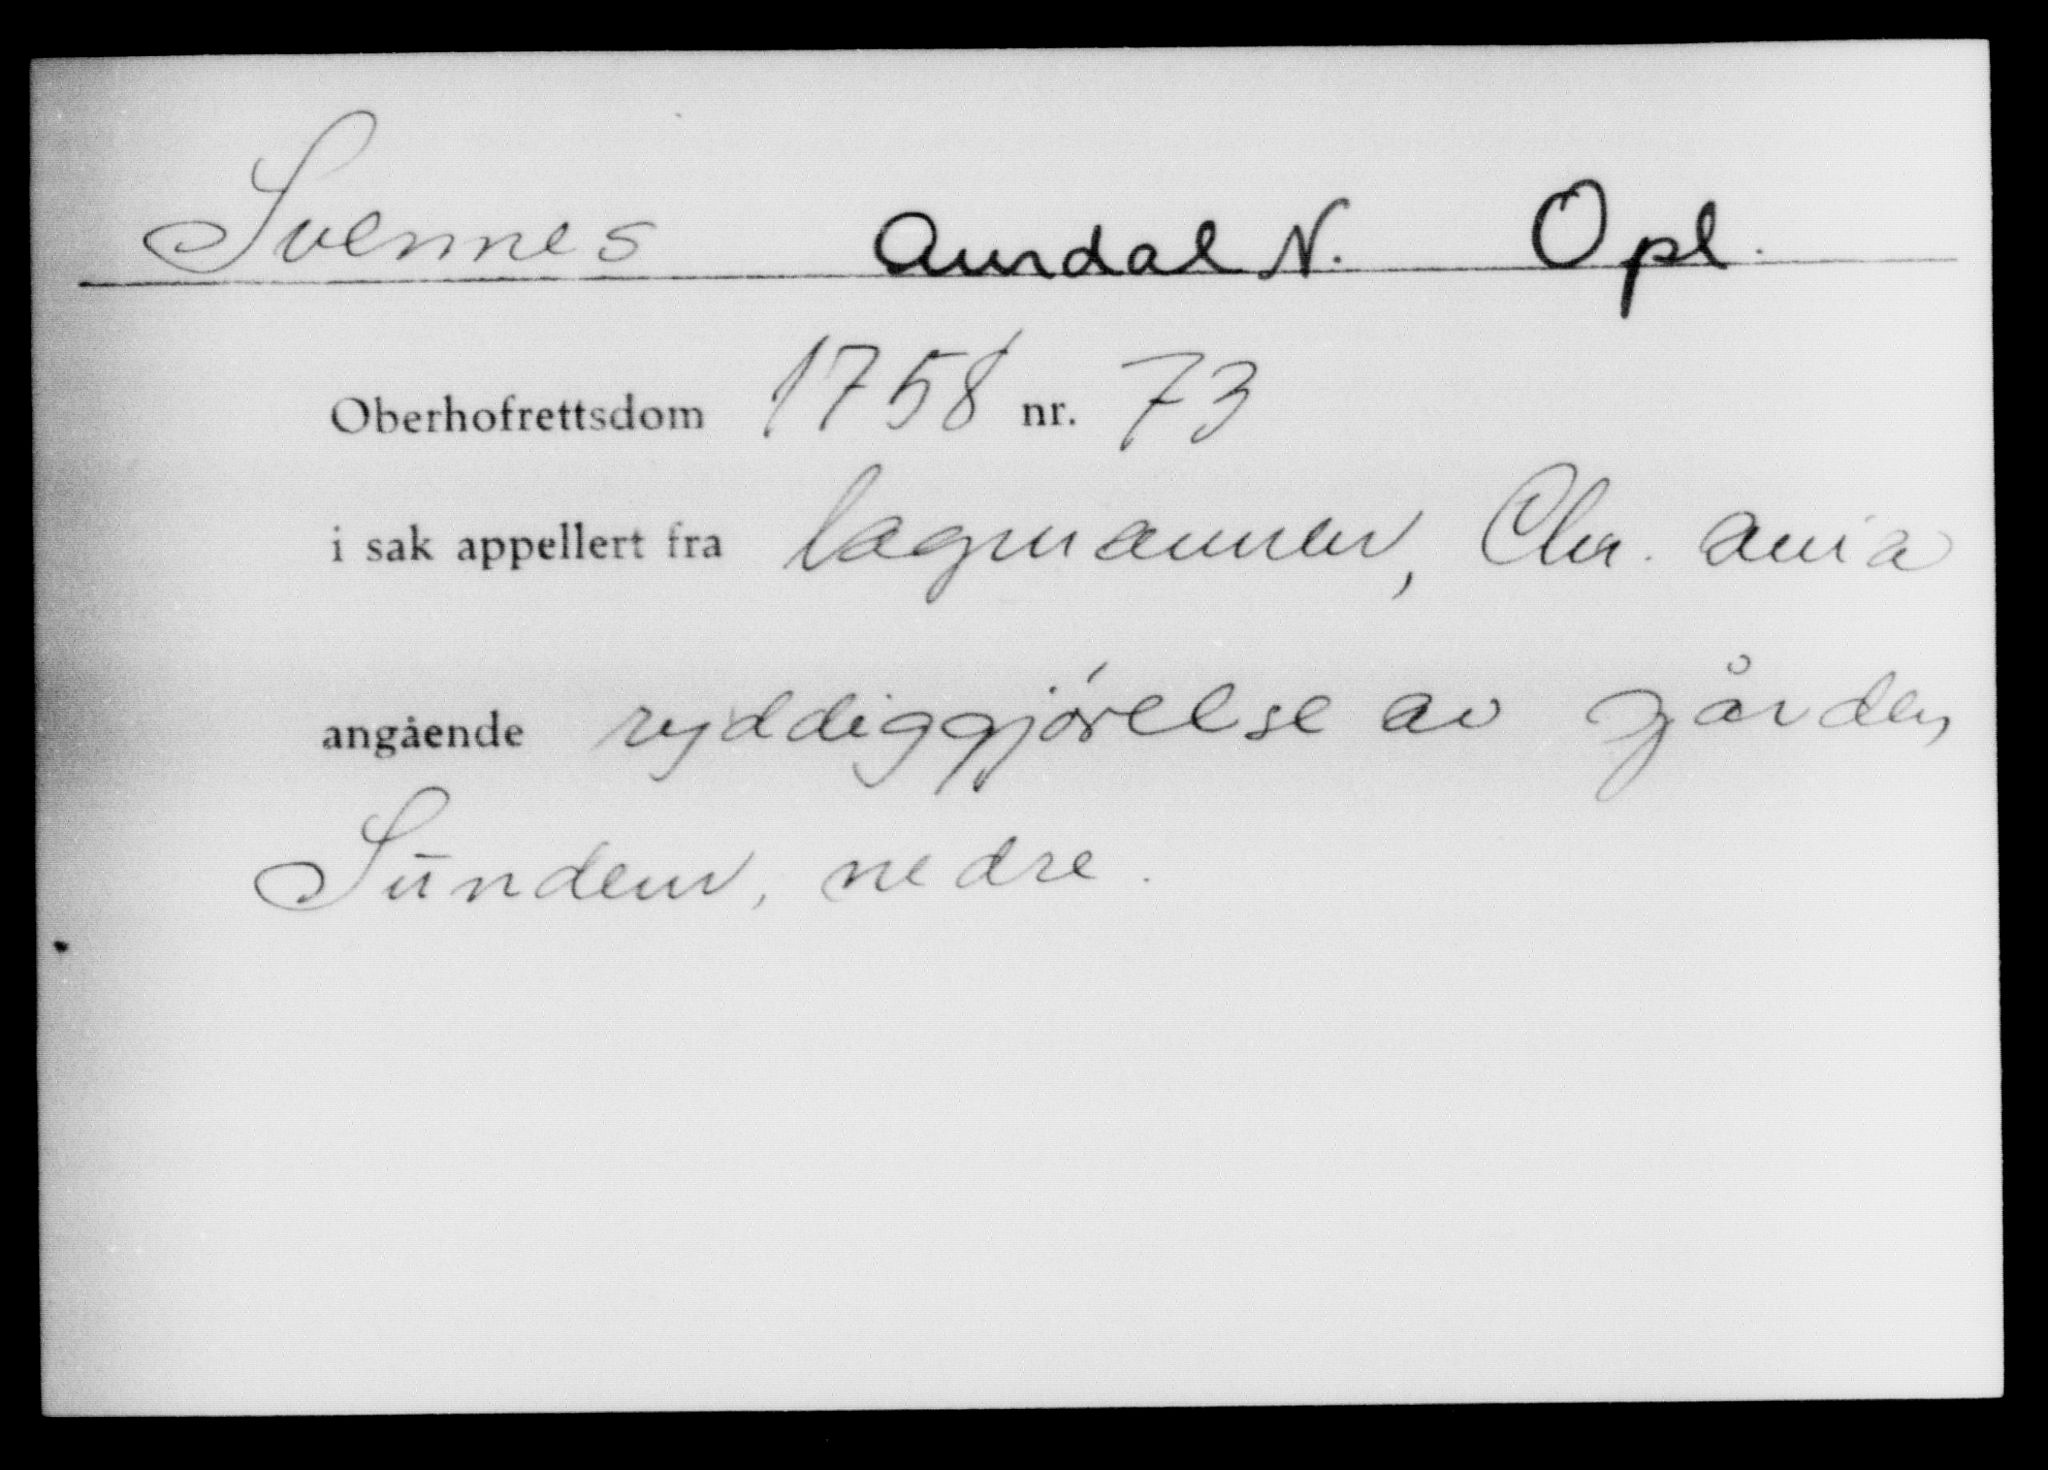 Svennes Aurdal N. Opl.
Oberhofrettsdom 1758 nr. 73
i sak appellert fra lagmannen, Chr. ania
angående ryddiggjørelse av gården
Sunden, nedre.